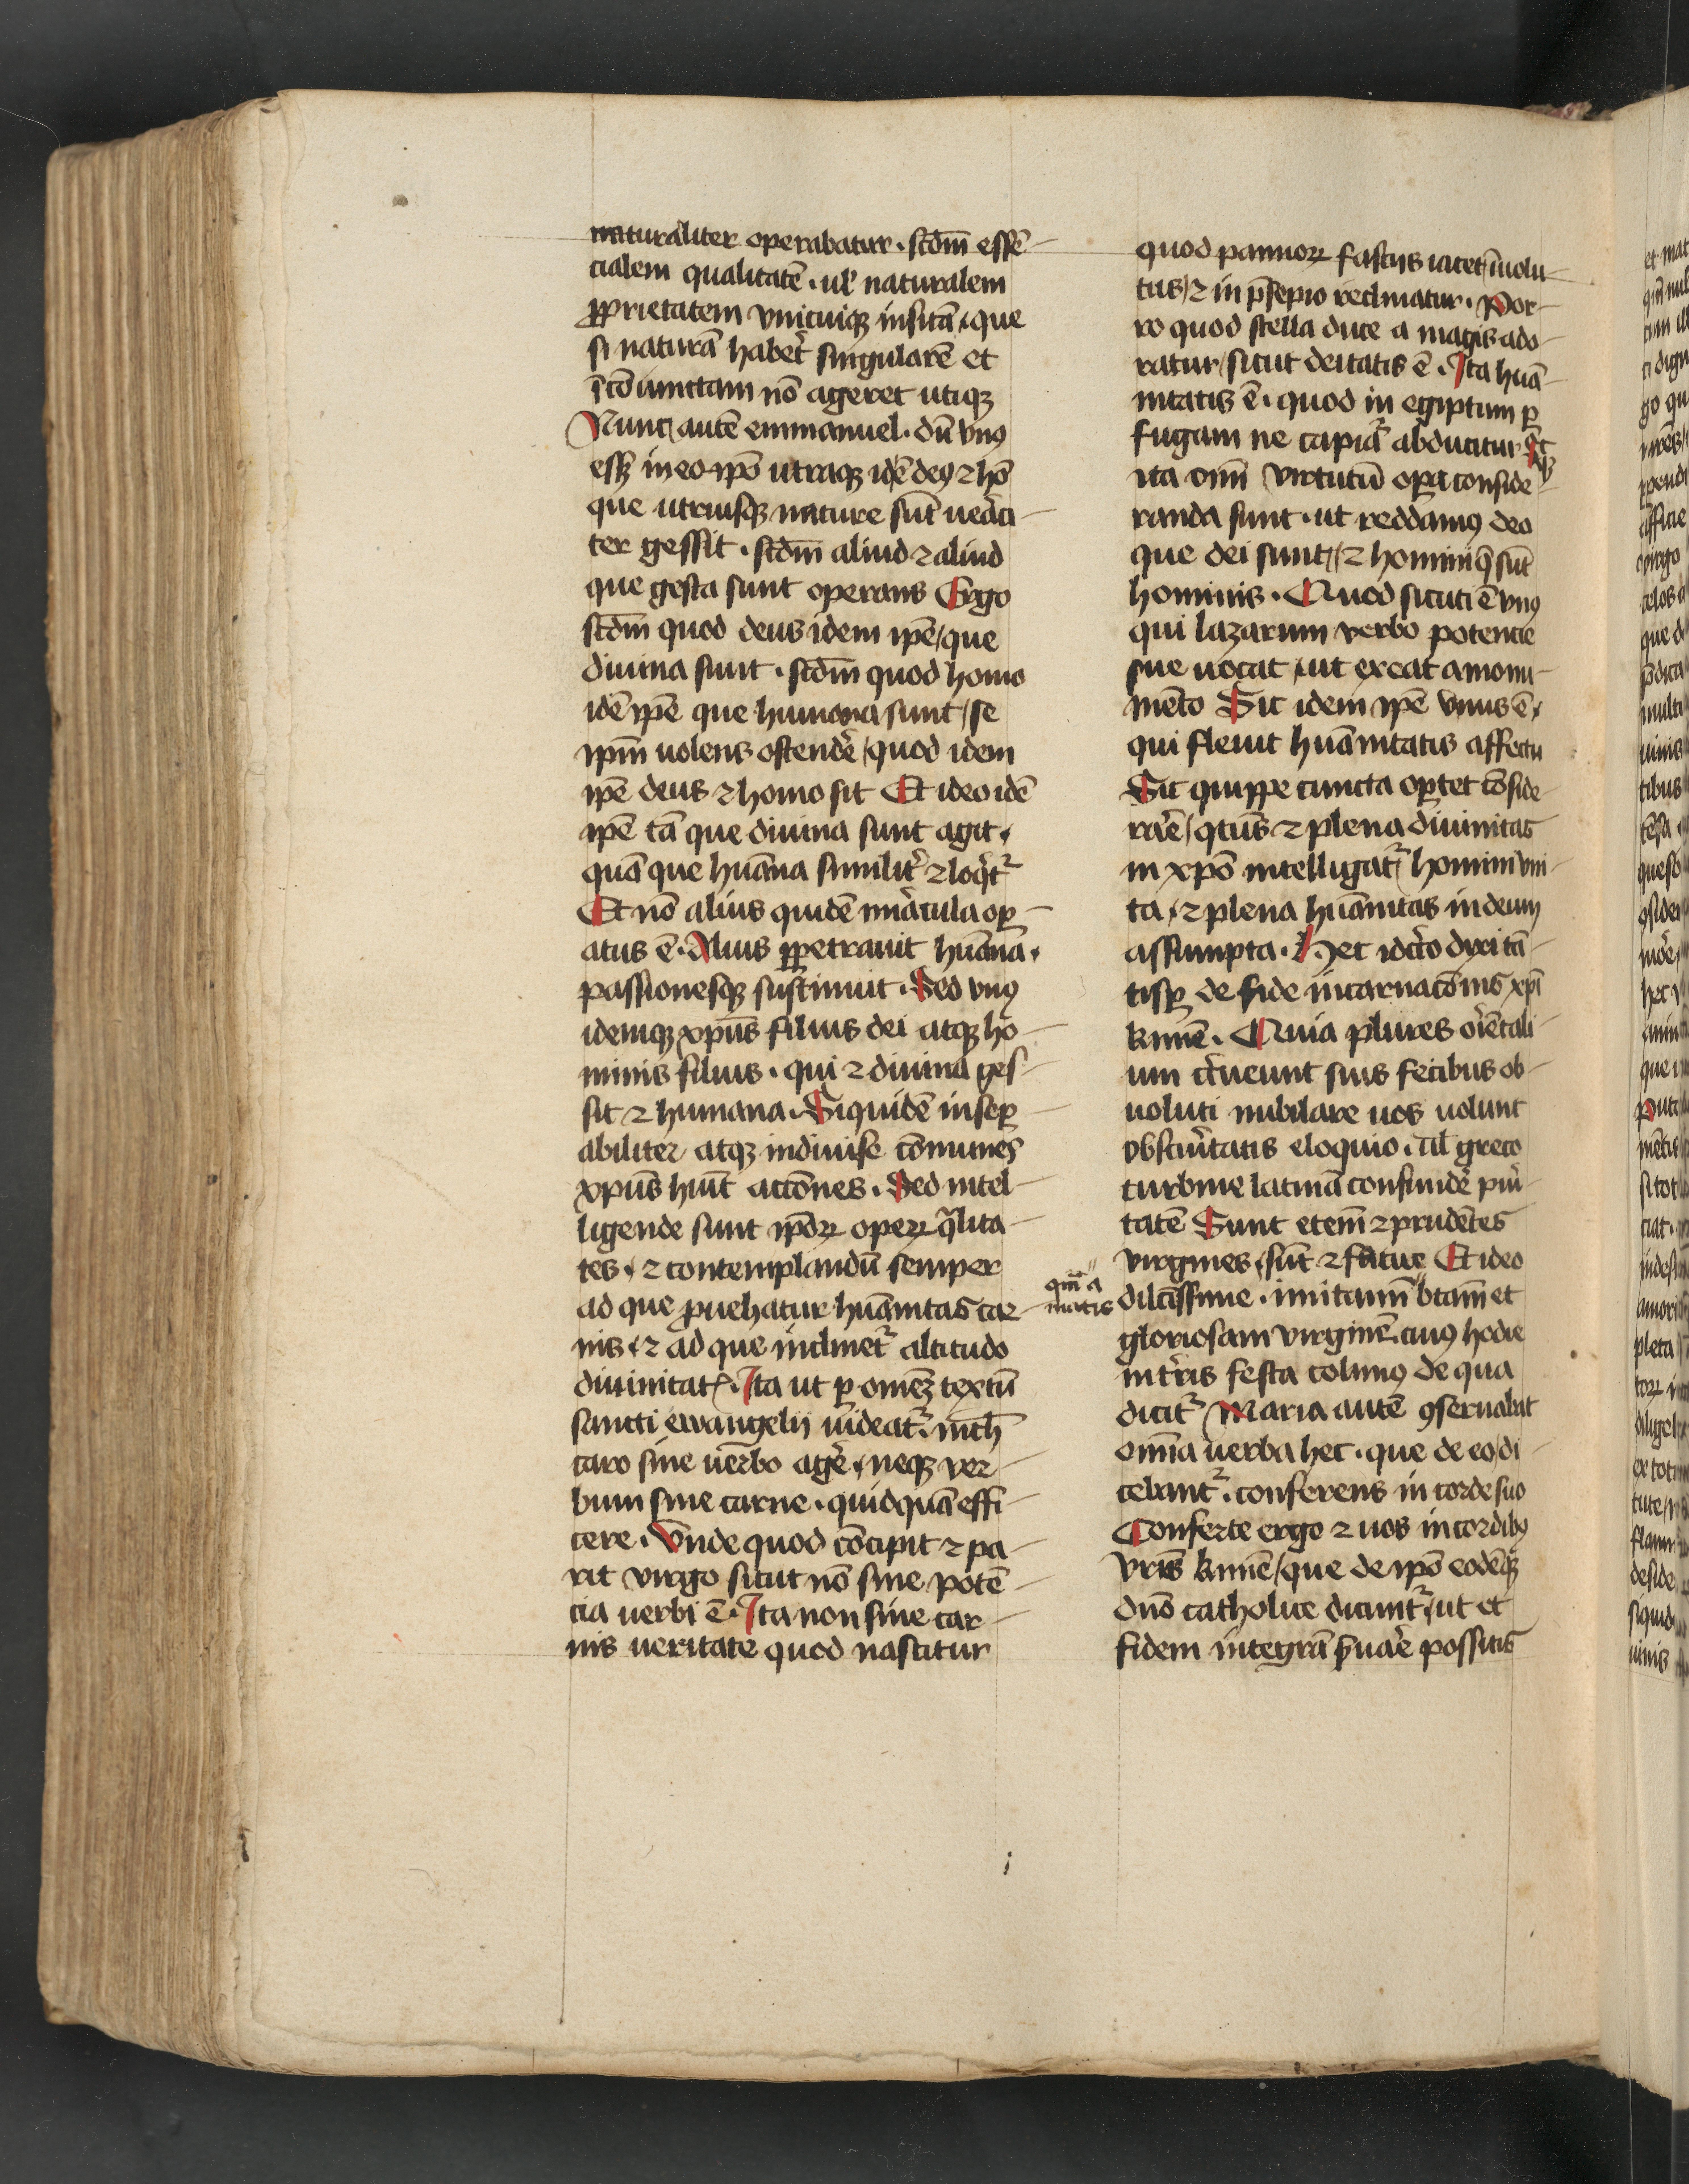 naturaliter operabatur. scdm̄ essē-
cialem qualitatē. ul' naturalem
ꝓprietatem vnicuiqꝫ insitā, que
si naturā habet᷑ singularē et
īcōiunctam nō ageret utiqꝫ
Nunc autē emmanuel. dū vnꝰ
essꝫ in eo ip̄o utraqꝫ idē deꝰ ⁊ hō
que utriusqꝫ nature sūt ueāci-
ter gessit. scdm̄ aliud ⁊ aliud
que gesta sunt operans Ergo
scdm̄ quod deus idem ip̄e/ que
diuina sunt. scdm̄ quod homo
idē ip̄e que humana sunt/ se
ip̄m uolens ostendē/ quod idem
ip̄e deus ⁊ homo sit Et ideo idē
ip̄e tā que diuina sunt agit,
quā que hūana similit̄ ⁊ loq̄t᷑
Et nō alius quidē mīacula oꝑ-
atus ē. Alius ꝑpetrauit hūana.
passionesqꝫ sustinuit. Sed vnꝰ
idemqꝫ xp̄us filius dei atqꝫ ho-
minis filius. qui ⁊ diuina ges-
sit ⁊ humana. Siquidē inseꝑ-
abiliter atqꝫ indiuise cōmunes
xp̄us hūit actōnes. Sed intel-
ligende sunt ip̄oꝝ operꝝ q̄lita-
tes, ⁊ contemplandū semper
ad que ꝓuehatur hūanitas car-
nis, ⁊ ad que inclinet᷑ altitudo
diuinitatꝭ. Ita ut ꝑ omēꝫ textū
sancti ewangelij uideat᷑. nich̄
caro sine uerbo agē, neqꝫ ver-
bum sine carne. quidquā effi-
cere. Vnde quod cōcipit ⁊ pa-
rit virgo sicut nō sine potē-
cia uerbi ē. Ita non sine car-
nis ueritate quod nascitur
quod pannoꝝ fascijs iacet/ īuolu-
tus/ ⁊ in p̄sepio reclinatur. Por-
ro quod stella duce a magis ado-
ratur/ sicut deitatis ē. Ita hūa-
nitatis ē. quod in egiptum ꝑ
fugam ne capiat᷑ abducitur Et
ita om̄i virtutū oꝑa conside-
randa sunt. ut reddamꝰ deo
que dei sunt/ ⁊ homini q̄ sūt
hominis. Quod sicuti ē vnꝰ
qui lazarum verbo potencie
sue uocat, ut exeat a monu-
mēto Sic idem ip̄e vnus ē,
qui fleuit hūanitatis affectu
Sic quippe cuncta oꝑtet cōside-
rare/ qten̄s ⁊ plena diuinitas
in xp̄o intelligat᷑/ homini vni-
ta, ⁊ plena hūanitas in deum
assumpta. Hec idc̄o dixi tā-
tisꝑ de fide incarnacōnis xp̄i
kmē. Quia plures oīentali-
um c̄ueunt suis fecibus ob-
uoluti nubilare uos uolunt
obscuītatis eloquio. ul' greco
turbine latinā confundē puī-
tatē Sunt etem̄ ⁊ prudētes
virgines, sūt ⁊ fatue Et ideo
qm̄ a
matis
dilcissime. imitamī btam̄ et
gloriosam virginē. cuiꝰ hodie
in tr̄is festa colimꝰ de qua
dicit᷑ Maria autē ꝯseruabat
omīa uerba hec. que de eo/ di-
cebant᷑. conferens in corde suo
Conferte ergo ⁊ uos in cordibꝰ
vris̄ kmē/ que de ip̄o eodēqꝫ
dn̄o catholice dicunt᷑, ut et
fidem integrā ẜuāe possitis